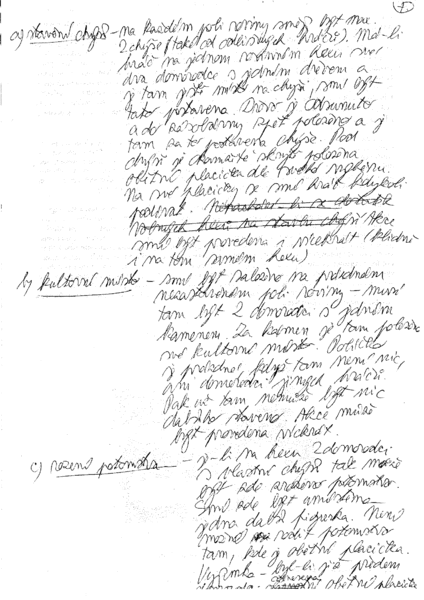 a) stavění chýší - na každém poli roviny smějí být max.
2 chýše (také od odlišných hráčů). Má-li
hráč na jednom rovinném hexu své
dva domorodce s jedním dřevem a
je tam ještě místo na chýši, smí být
tato postavena. Dřevo je odsunuto
a do zásobárny zpět položeno a je
tam za to postavena chýše. Pod
chýši je okamžitě skrytě položena
obětní placička dle
Na své placičky se smí hráč kdykoli
podívat.
Akce
smí být provedena i vícekrát (klidně
i na tom samém hexu)
b) kultovní místo - smí být založeno na prázdném
nezastavěném poli roviny - musí
tam být 2 domorodci s jedním
kamenem. Za kámen je tam položeno
své kultovní místo. Políčko
je prázdné, když tam není nic,
ani domorodci jiných hráčů.
Pak už tam nemůže být nic
dalšího staveno. Akce může
být provedena vícekrát.
c) rození potomstva - je-li na hexu 2 domorodci
s vlastní chýší tak může
být zde zrozeno potomstvo.
Smí zde být umístěna
jedna další figurka. Není
možno rodit potomstvo
tam, kde je obětní placička.
Výjimka - byl-li již předem
obětní placička